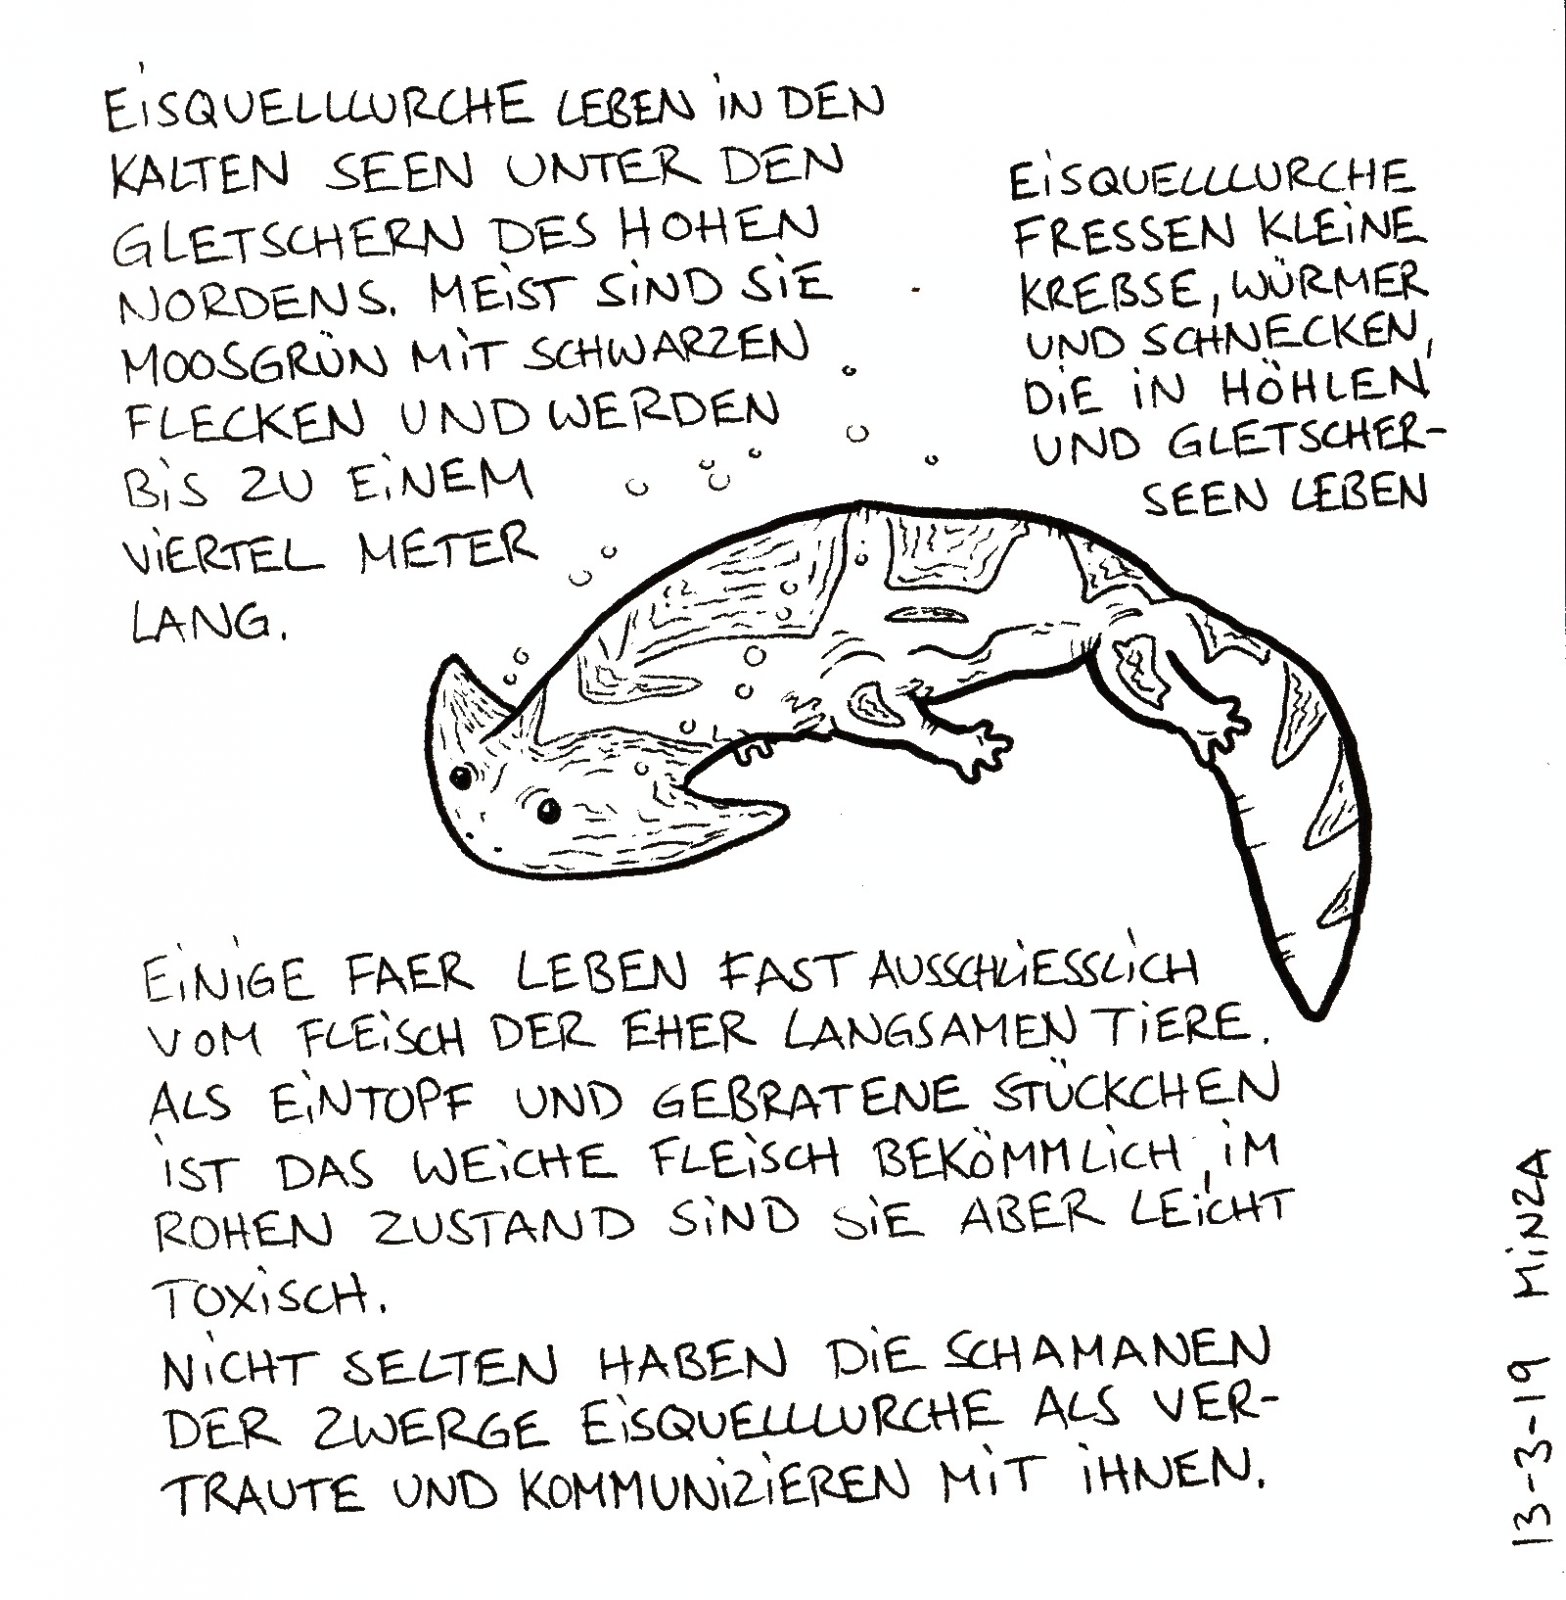 EISQUELLLURCHE LEBEN IN DEN
KALTEN SEEN UNTER DEN
GLETSCHERN DES HOHEN
NORDENS. MEIST SIND SIE
MOOSGRÜN MIT SCHWARZEN
FLECKEN UND WERDEN
BIS ZU EINEM
VIERTEL METER
LANG.
EISQUELLLURCHE
FRESSEN KLEINE
KREBSE, WÜRMER
UND SCHNECKEN,
DIE IN HÖHLEN
UND GLETSCHER-
SEEN LEBEN
EINIGE FAER LEBEN FAST AUSSCHLIESSLICH
VOM FLEISCH DER EHER LANGSAMEN TIERE.
ALS EINTOPF UND GEBRATENE STÜCKCHEN
IST DAS WEICHE FLEISCH BEKÖMMLICH, IM
ROHEN ZUSTAND SIND SIE ABER LEICHT
TOXISCH.
NICHT SELTEN HABEN DIE SCHAMANEN
DER ZWERGE EISQUELLLURCHE ALS VER-
TRAUTE UND KOMMUNIZIEREN MIT IHNEN.
13-3-19 MINZA